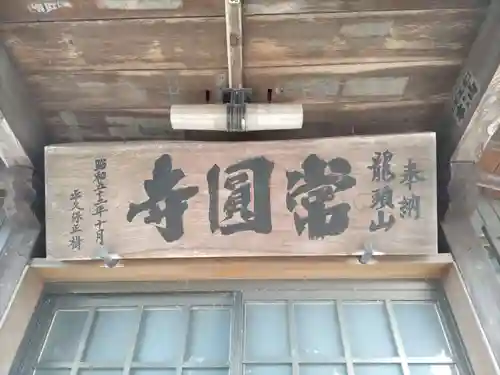 奉納
龍頭山
常圓寺
昭和五十三年十月